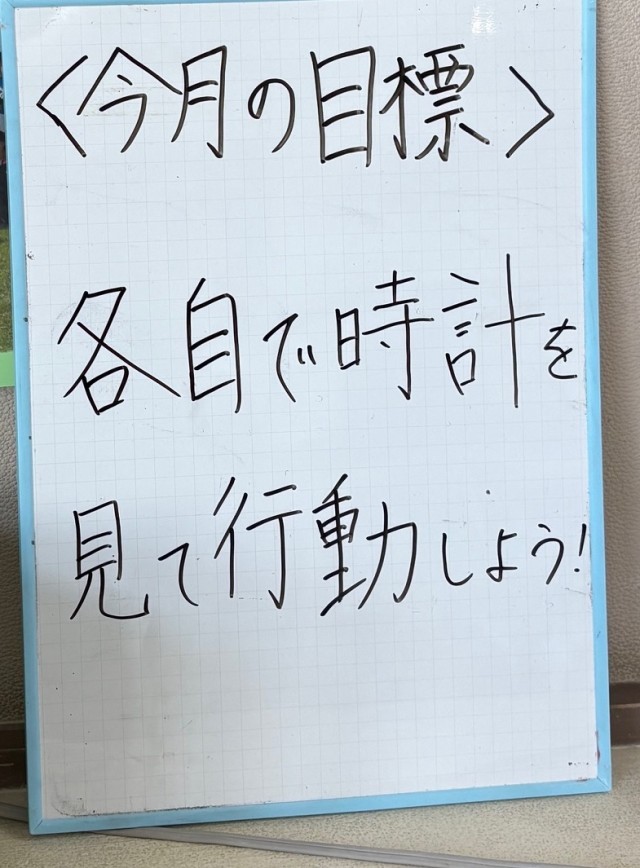 〈今月の目標〉
各自で時計を
見て行動しよう!